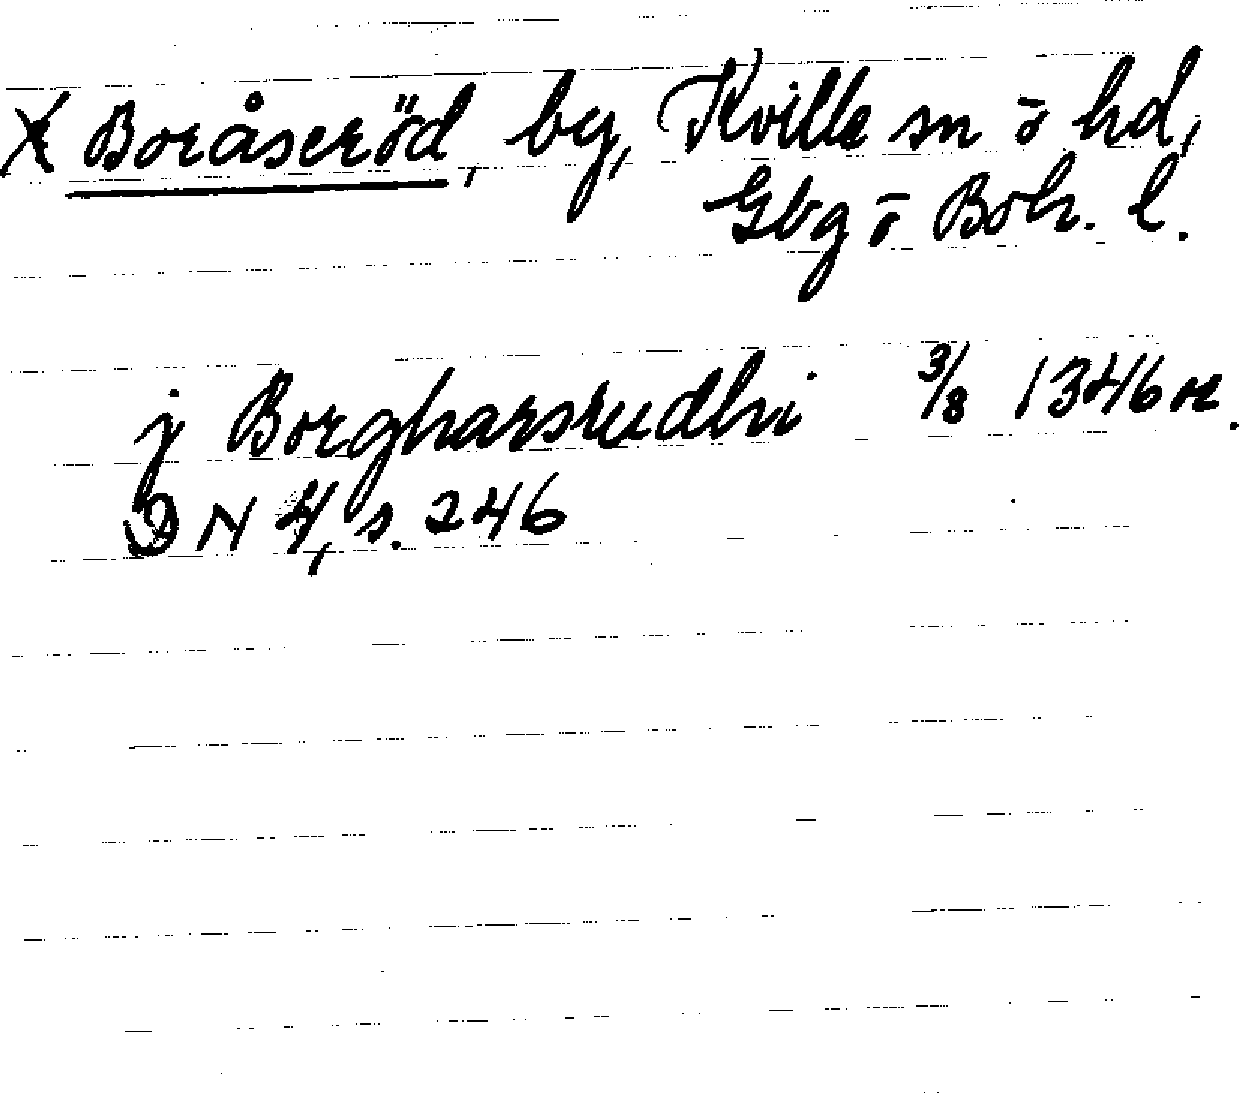 X Boråseröd, by, Kville sn ō hd,
Gbg ō Boh. l.
j Borgharsrudhi 3/8 1346 or.
DN 4, s. 246